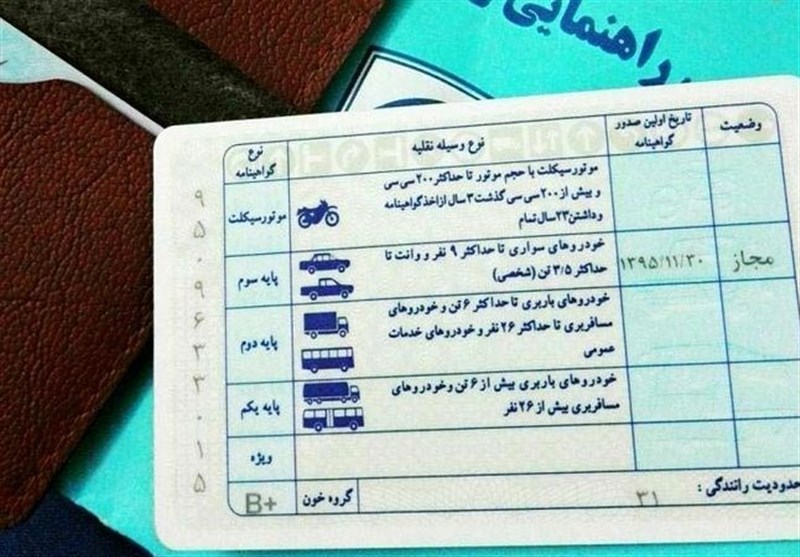 راهنمایی
وضعیت
تاریخ اولین صدور
گواهینامه
نوع وسیله نقلیه
نوع
گواهینامه
موتورسیکلت با حجم موتور تا حداکثر ۲۰۰ سی سی
و بیش از ۲۰۰ سی سی گذشت ۳ سال از اخذ گواهینامه
و داشتن ۲۳ سال تمام
موتورسیکلت
مجاز
۱۳۹۵/۱۱/۳۰
خودروهای سواری تا حداکثر ۹ نفر و وانت تا
حداکثر ۳/۵ تن (شخصی)
پایه سوم
خودروهای باربری تا حداکثر ۶ تن و خودروهای
مسافربری تا حداکثر ۲۶ نفر و خودروهای خدمات
عمومی
پایه دوم
خودروهای باربری بیش از ۶ تن و خودروهای
مسافربری بیش از ۲۶ نفر
پایه یکم
ویژه
حدودیت رانندگی :
۳۱
گروه خون
B+
۹
۵
۰
۹
۶
۳
۳
۰
۱
۵